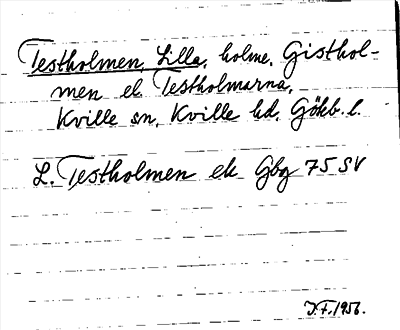 Testholmen, Lilla, holme, Gisthol-
men el. Testholmarna,
Kville sn, Kville hd, Gökb. l.
L. Testholmen ek Gbg 75 SV
J.F. 1956.